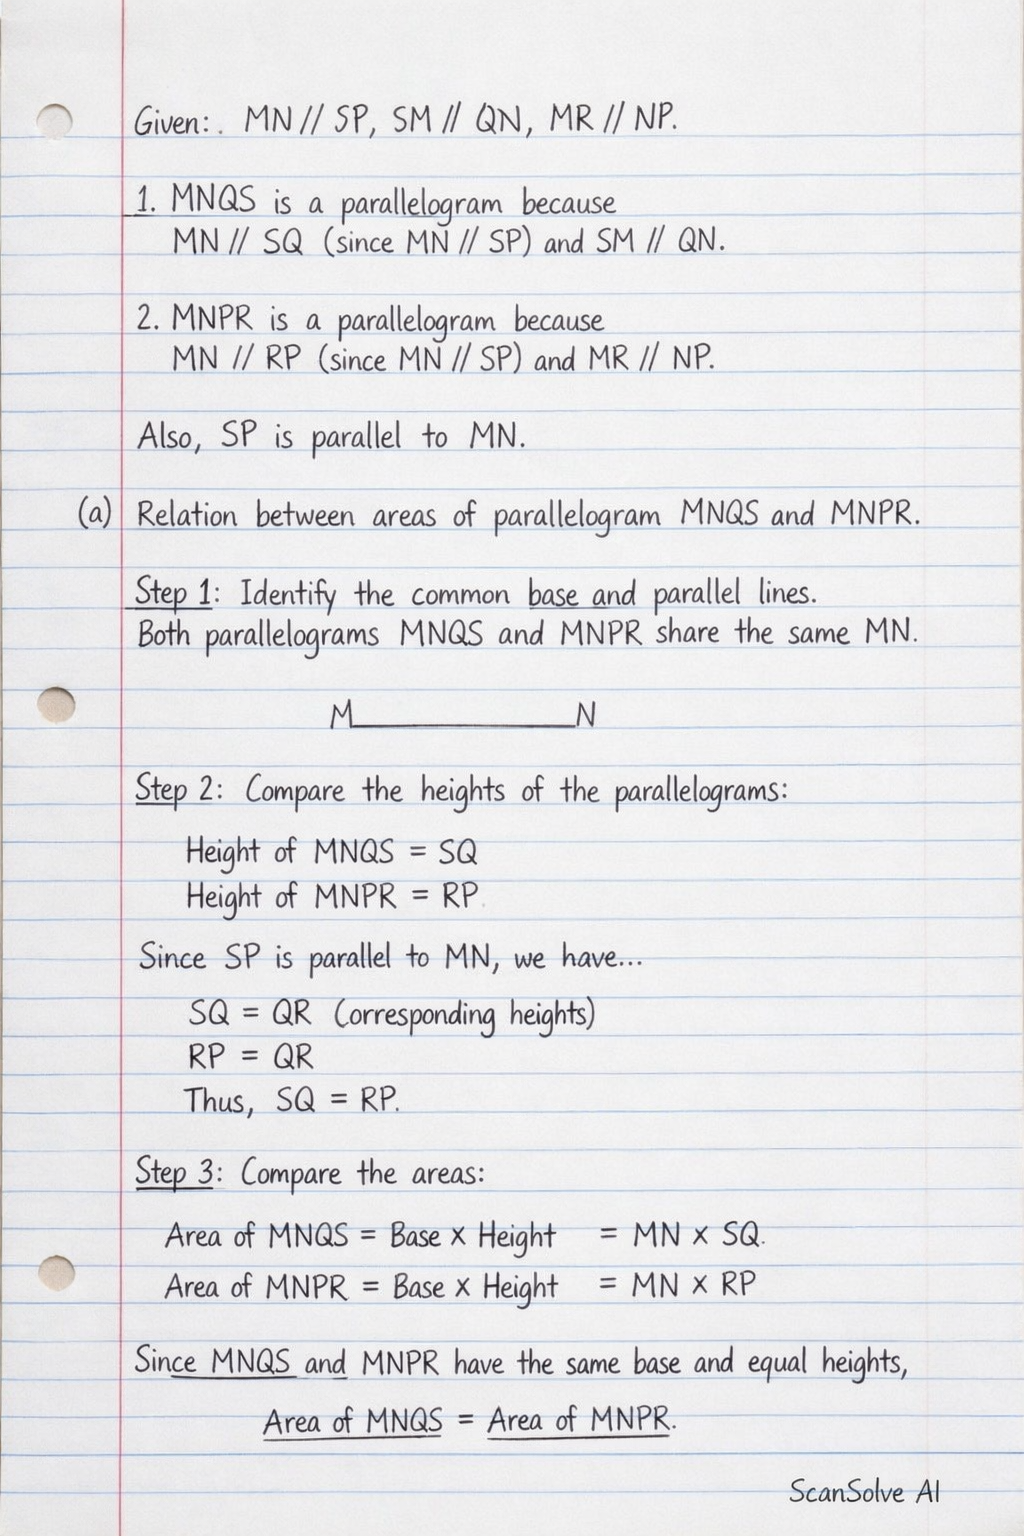 Given:. MN // SP, SM // QN, MR // NP.
1. MNQS is a parallelogram because
MN // SQ (since MN // SP) and SM // QN.
2. MNPR is a parallelogram because
MN // RP (since MN // SP) and MR // NP.
Also, SP is parallel to MN.
(a) Relation between areas of parallelogram MNQS and MNPR.
Step 1: Identify the common base and parallel lines.
Both parallelograms MNQS and MNPR share the same MN.
M N
Step 2: Compare the heights of the parallelograms:
Height of MNQS = SQ
Height of MNPR = RP.
Since SP is parallel to MN, we have...
SQ = QR (orresponding heights)
RP = QR
Thus, SQ = RP.
Step 3: Compare the areas:
Area of MNQS = Base x Height = MN x SQ.
Area of MNPR = Base x Height = MN x RP
Since MNQS and MNPR have the same base and equal heights,
Area of MNQS = Area of MNPR.
ScanSolve AI